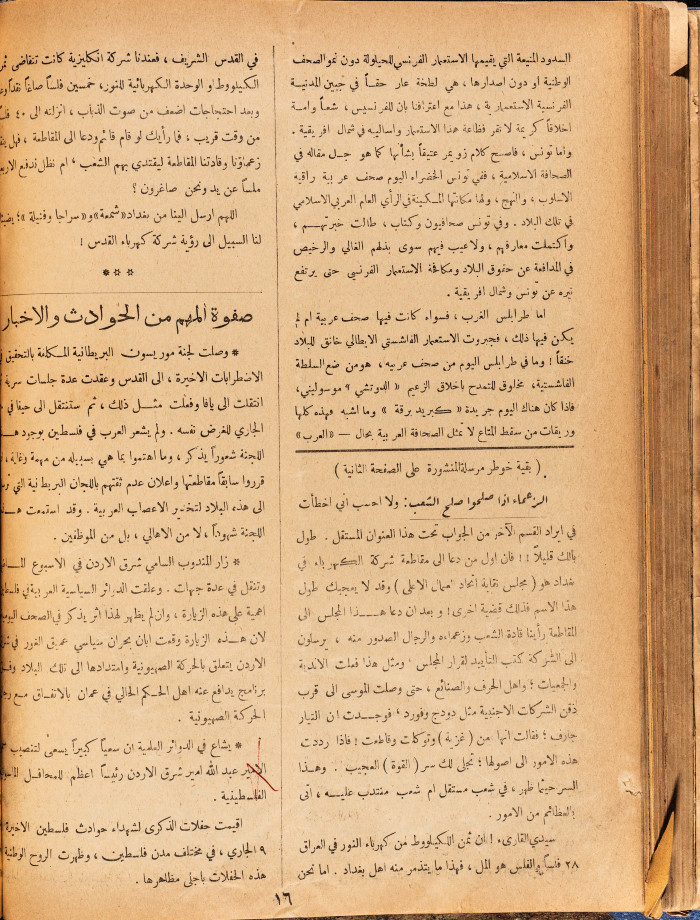 السدود المنيعة التي يقيمها الاستعمار الفرنسي للحيلولة دون نمو الصحف
الوطنية او دون اصدارها ، هي لطخة عار حقاً في جبين المدنية
الفرنسية الاستعمارية ، هذا مع اعترافنا بان للفرنسيس ، شعباً وامة
اخلاقاً كريمة لا تقر فظاعة هذا الاستعمار واساليبه في شمال افريقية .
واما تونس ، فاصبح كلام زويمر عتيقاً بشأنها كما هو جل مقاله في
الصحافة الاسلامية ، ففي تونس الخضراء اليوم صحف عربية راقية
الاسلوب ، والنهج ، ولها مكانتها المكينة في الرأي العام العربي الاسلامي
في تلك البلاد . وفي تونس صحافيون وكتاب ، طالت خبرتهم ،
واكتملت معارفهم ، ولا عيب فيهم سوى بذلهم الغالي والرخيص
في المدافعة عن حقوق البلاد ومكافحة الاستعمار الفرنسي حتى يرتفع
نيره عن تونس وشمال افريقية .
اما طرابلس الغرب ، فسواء كانت فيها صحف عربية ام لم
يكن فيها ذلك ، فجبروت الاستعمار الفاشستي الايطالي خانق للبلاد
خنقاً ! وما في طرابلس اليوم من صحف عربيه ، هو من ضع السلطة
الفاشستية ، مخلوق للتمدح باخلاق الزعيم « الدوتشي » موسوليني ،
فاذا كان هناك اليوم جريدة « كبريد برقة » وما اشبه فهذه كلها
وريقات من سقط المتاع لا تمثل الصحافة العربية بحال — «العرب»
( بقية خوطر مرسلة المنشورة على الصفحة الثانية )
الزعماء اذا صلحوا صلح الشعب : ولا احسب اني اخطأت
في ايراد القسم الآخر من الجواب تحت هذا العنوان المستقل . طول
بالك قليلاً !! فان اول من دعا الى مقاطعة شركة الكهرباء في
بغداد هو ( مجلس نقابة اتحاد العمال الاعلى ) وقد لا يعجبك طول
هذا الاسم فذلك قضية اخرى ! وبعد ان دعا هذا المجلس الى
المقاطعة رأينا قادة الشعب وزعماءه والرجال الصدور منه ، يرسلون
الى الشركة كتب التأييد لقرار المجلس ؛ ومثل هذا فعلت الاندية
والجمعيات ؛ واهل الحرف والصنائع ، حتى وصلت الموسى الى قرب
ذقن الشركات الاجنبية مثل دودج وفورد ، فوجدت ان التيار
جارف ؛ فقالت انها من ( غزية ) وتوكلت وقاطعت ! فاذا رددت
هذه الامور الى اصولها ؛ تجلى لك سر ( القوة ) العجيب . وهذا
السر حيثما ظهر ، في شعب مستقل ام شعب منتدب عليه ، اتى
بالعظائم من الامور .
سيدي القارىء ! ان ثمن الكيلوط من كهرباء النور في العراق
٢٨ فلساً والفلس هو المل ، فهذا ما يتذمر منه اهل بغداد . اما نحن
في القدس الشريف ، فعندنا شركة انكليزية كانت تتقاضى ثمن
الكيلوط او الوحدة الكهربائية للنور ، خمسين فلساً صاغاً نقداً
وبعد احتجاجات اضعف من صوت الذباب ، انزلته الى ٤٠
من وقت قريب ، فما رأيك لو قام قائم ودعا الى المقاطعة ، فهل
زعماؤنا وقادتنا المقاطعة ليقتدي بهم الشعب ؛ ام نظل ندفع
ملساً عن يد ونحن صاغرون ؟
اللهم ارسل الينا من بغداد «شمعة» و«سراجا وفتيلة» ؛
لنا السبيل الى رؤية شركة كهرباء القدس !
* * *
صفوة المهم من الحوادث والاخبار
* وصلت لجنة موريسون البريطانية المكلفة بالتحقيق في
الاضطرابات الاخيرة ، الى القدس وعقدت عدة جلسات سرية
انتقلت الى يافا وفعلت مثل ذلك ، ثم ستنتقل الى حيفا في
الجاري للغرض نفسه . ولم يشعر العرب في فلسطين بوجود هذه
اللجنة شعوراً يذكر ، وما اهتموا بما هي بسبيله من مهمة وغاية ،
قرروا سابقاً مقاطعتها واعلان عدم ثقتهم باللجان البريطانية التي
الى هذه البلاد لتخدير الاعصاب العربية . وقد استمعت هذه
اللجنة شهوداً ، لا من الاهالي ، بل من الموظفين .
* زار المندوب السامي شرق الاردن في الاسبوع الماضي
وتنقل في عدة جهات . وعلقت الدوائر السياسية العربية في فلسطين
اهمية على هذه الزيارة ، وان لم يظهر لهذا اثر يذكر في الصحف اليومية
لان هذه الزيارة وقعت ابان بحران سياسي عميق الغور في شرق
الاردن يتعلق بالحركة الصهيونية وامتدادها الى تلك البلاد وفق
برنامج يدافع عنه اهل الحكم الحالي في عمان بالاتفاق مع
الحركة الصهيونية .
* يشاع في الدوائر العلمية ان سعياً كبيراً يسعى لتنصيب
الامير عبد الله امير شرق الاردن رئيساً اعظم للمحافل الماسونية
الفلسطينية .
اقيمت حفلات الذكرى لشهداء حوادث فلسطين الاخيرة
٩ الجاري ، في مختلف مدن فلسطين ، وظهرت الروح الوطنية
هذه الحفلات باجلى مظاهرها .
١٦